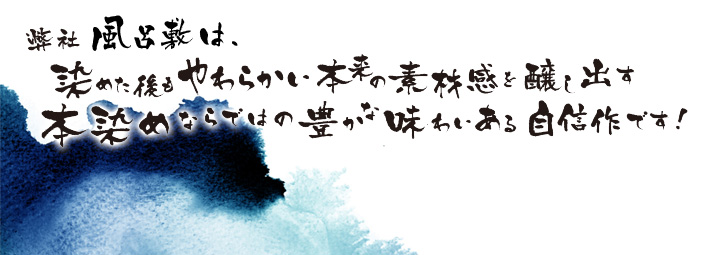 弊社風呂敷は、
染めた後もやわらかい本来の素材感を醸し出す
本染めならではの豊かな味わいある自信作です!